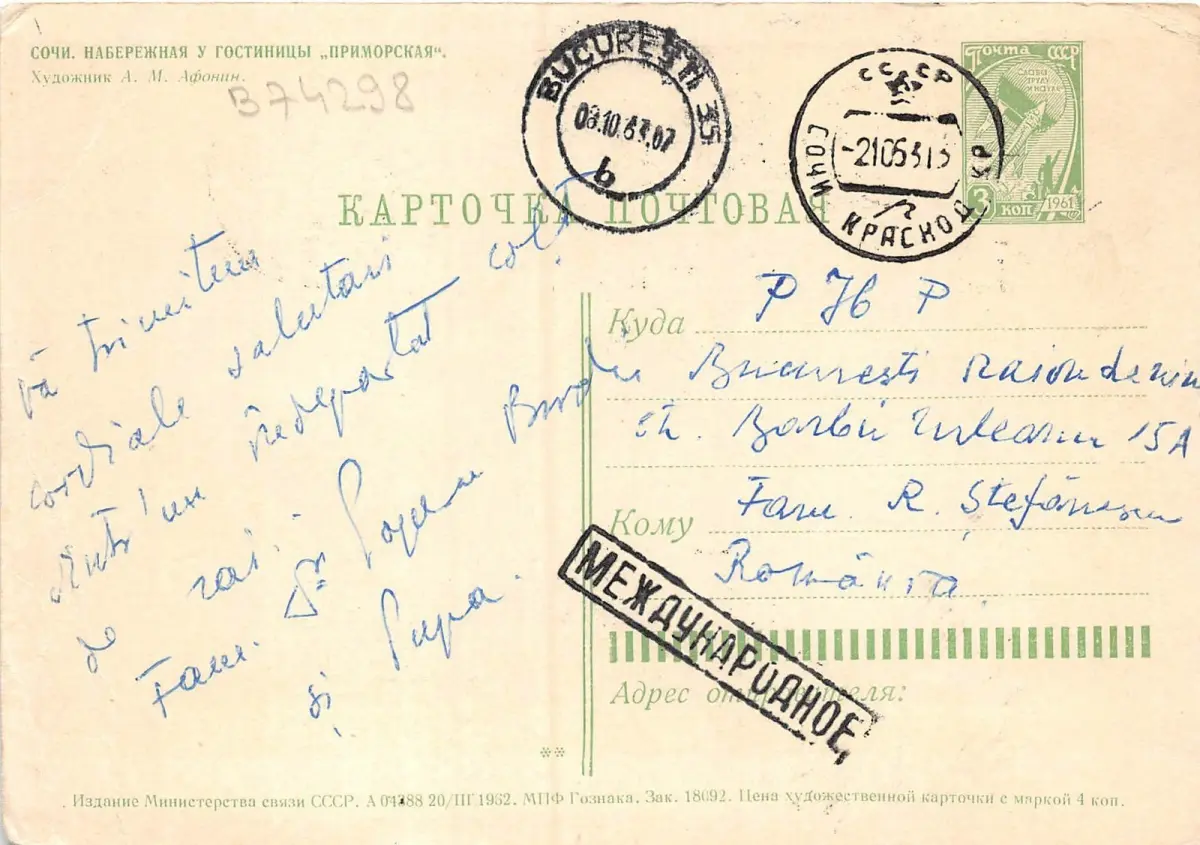 СОЧИ. НАБЕРЕЖНАЯ У ГОСТИНИЦЫ „ПРИМОРСКАЯ“.
Художник А. М. Афонин.
B74298
BUCUREȘTI 35
08.10.63.07
b
СССР
-210631
СОЧИ КРАСНОД КР
Почта СССР
СЛАВА ТРУДУ И НАУКЕ
3 коп
1961
КАРТОЧКА ПОЧТОВАЯ
vă trimitem
cordiale salutari
dintr'un îndepartat colț
de rai.
Fam. Popescu
și Pupa.
Куда
Р Н Р
București raion
str. Barbu 15A
Кому
Fam. R. Ștefănescu
România.
МЕЖДУНАРОДНОЕ
Адрес отправителя:
Издание Министерства связи СССР. А 04388 20/III 1962. МПФ Гознака. Зак. 18092. Цена художественной карточки с маркой 4 коп.